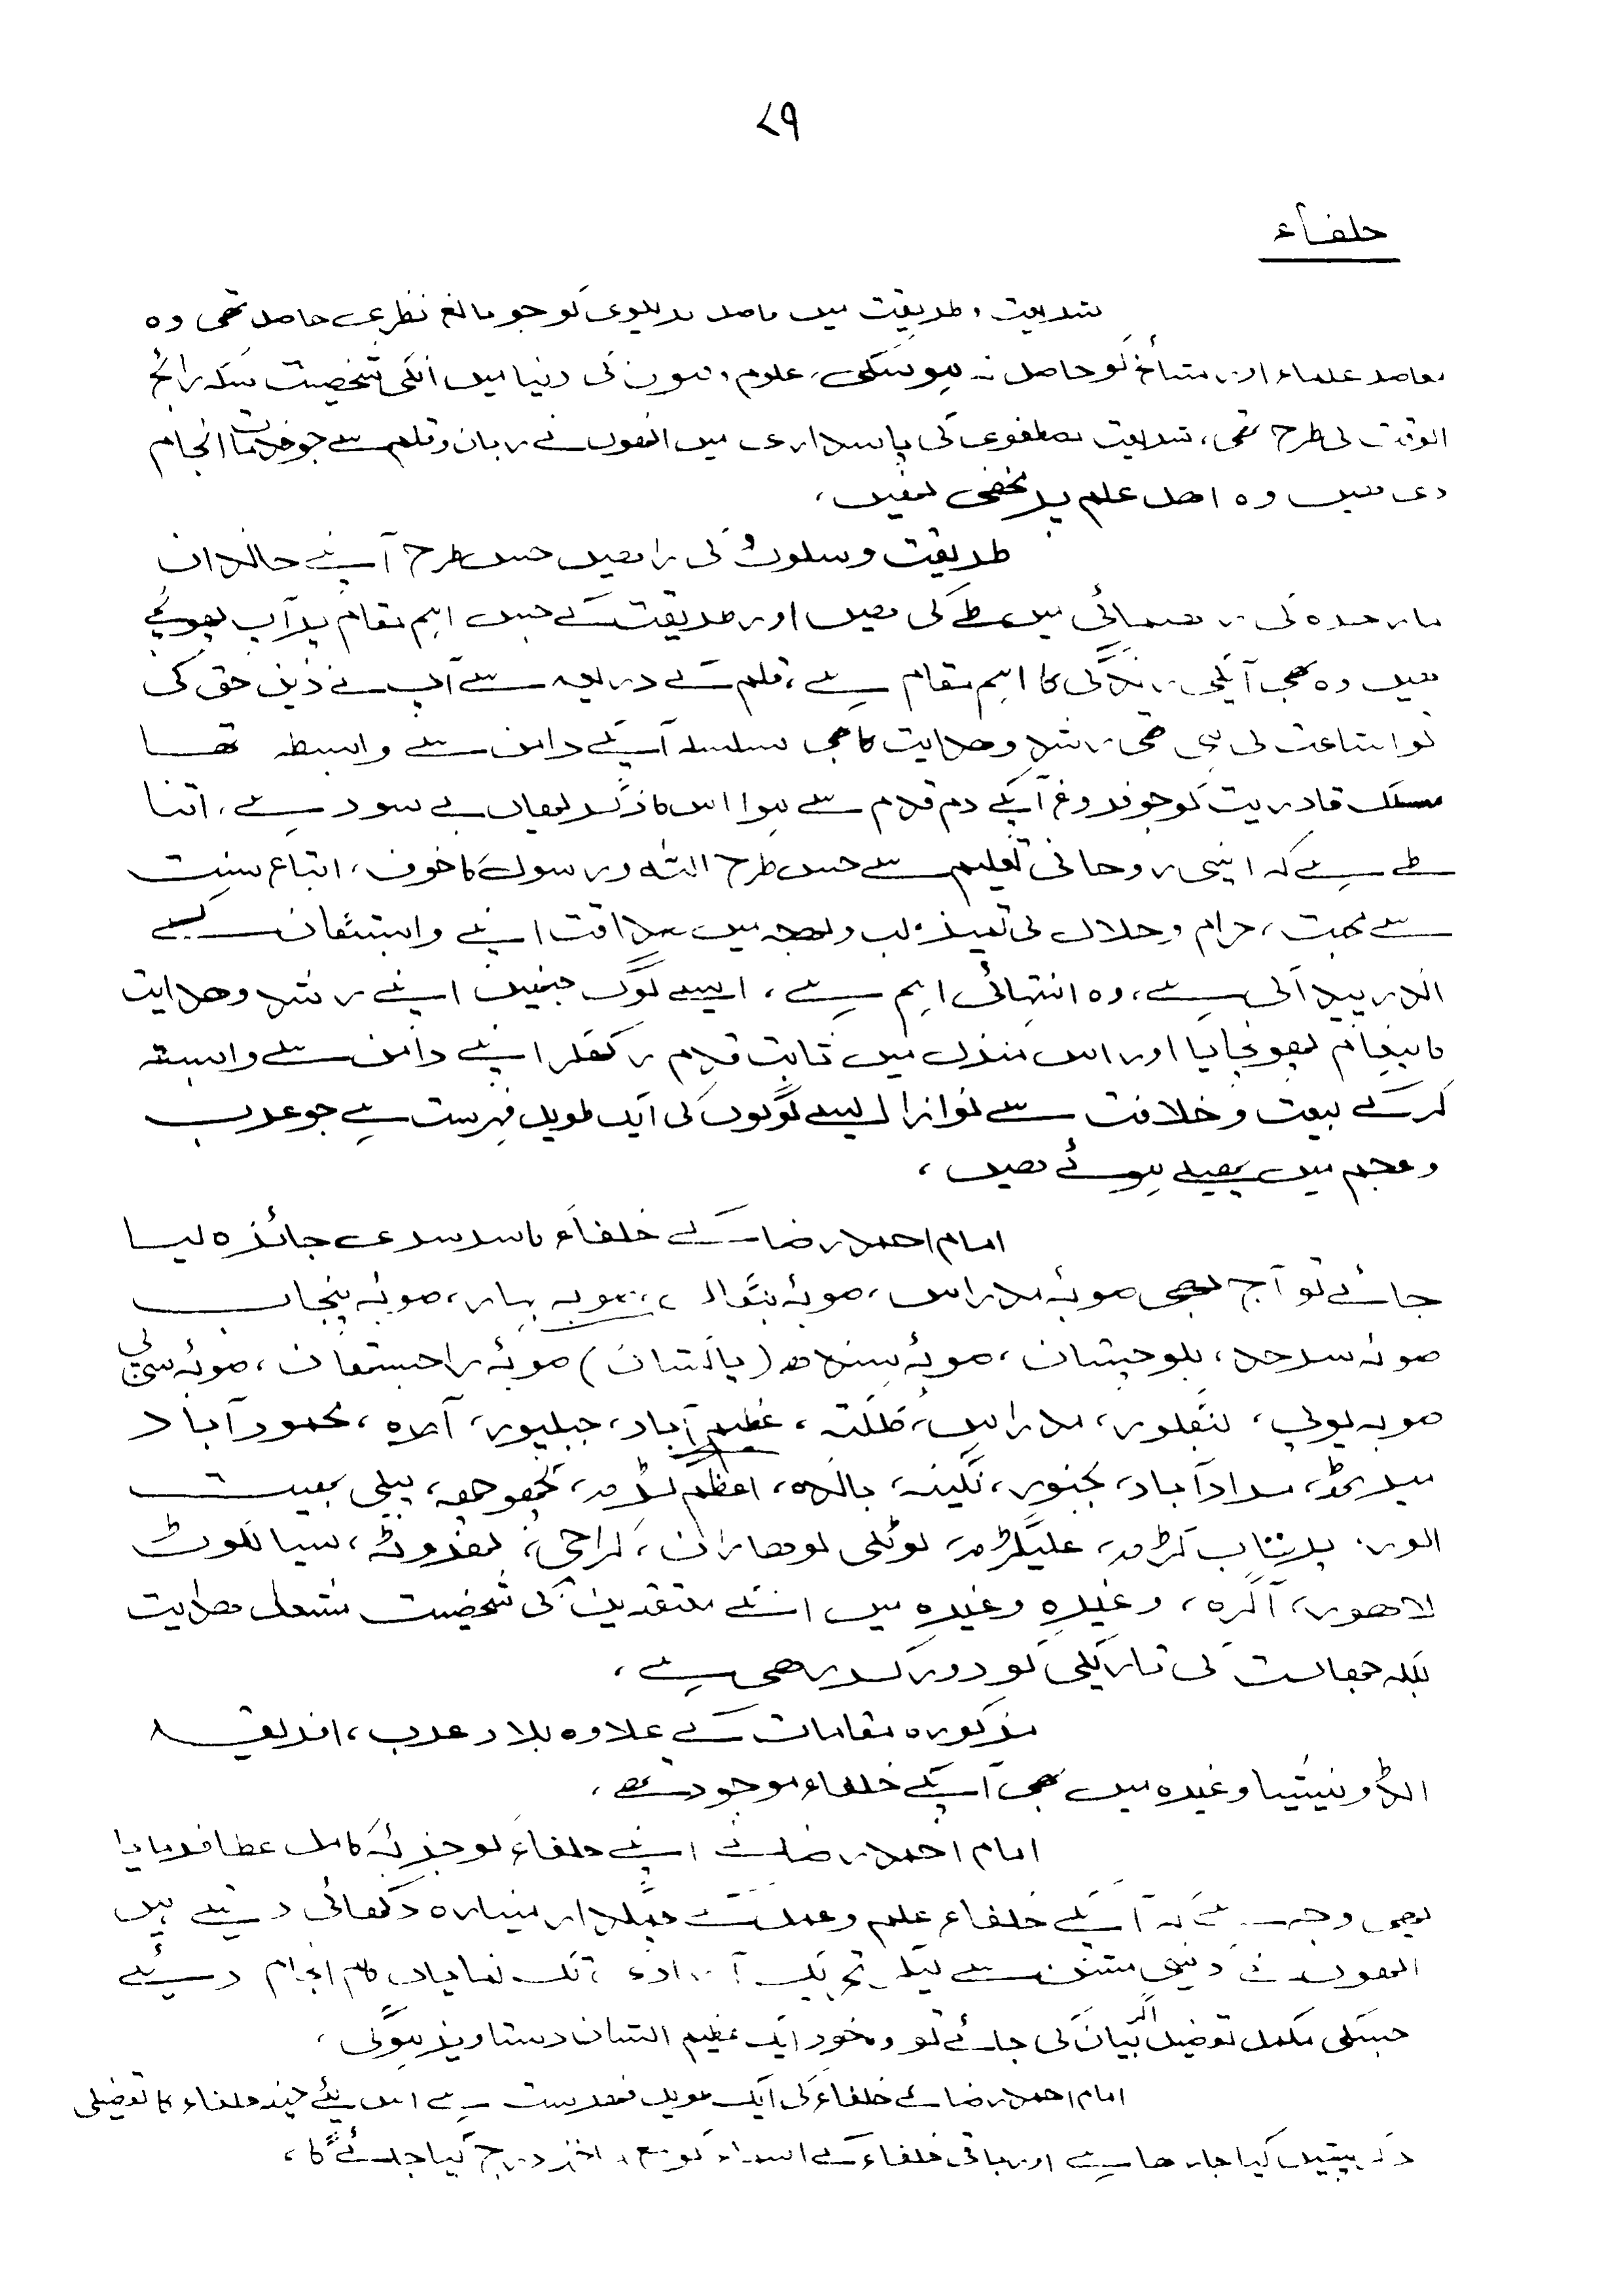 ۷۹
خلفاء
شریعت و طریقت میں فاضل بریلوی کو جو بالغ نظری حاصل تھی وہ
معاصر علماء اور مشائخ کو حاصل نہ ہوسکی، علوم و فنون کی دنیا میں انکی شخصیت سکہ رائج
الوقت کی طرح تھی، شریعت مصطفوی کی پاسداری میں انھوں نے زبان و قلم سے جو خدمات انجام
دی ھیں وہ اھل علم پر مخفی نھیں،
طریقت و سلوک کی راھیں جس طرح آپنے خاندان
مارھرہ کی رھنمائی میں طے کی ھیں اور طریقت کے جس اہم مقام پر آپ پھونچے
ھیں وہ بھی آپکی زندگی کا اہم مقام ہے، قلم کے ذریعہ سے آپ نے دین حق کی
تو اشاعت کی ہی تھی رشد وھدایت کا بھی سلسلہ آپکے دامن سے وابسطہ تھا
مسلک قادریت کو جو فروغ آپکے دم قدم سے ہوا اس کا ذکر یھاں بے سود ہے، اتنا
طے ہے کہ اپنی روحانی تعلیم سے جس طرح اللہ و رسول کا خوف، اتباع سنت
سے محبت، حرام و حلال کی تمیز، لب ولھجہ میں صداقت اپنے وابستگان کے
اندر پیدا کی ہے، وہ انتہائی اہم ہے، ایسے لوگ جنھیں اپنے رشد وھدایت
کا پیغام پھونچایا اور اس منزل میں ثابت قدم رکھکر اپنے دامن سے وابستہ
کرکے بیعت و خلافت سے نوازا ایسے لوگوں کی ایک طویل فہرست ہے جو عرب
و عجم میں پھیلے ہوئے ھیں،
امام احمد رضا کے خلفاء کا سرسری جائزہ لیا
جائے تو آج بھی صوبۂ مدراس، صوبۂ بنگال، صوبہ بہار، صوبۂ پنجاب
صوبۂ سرحد، بلوچستان، صوبۂ سندھ (پاکستان) صوبۂ راجستھان، صوبۂ سی پی
صوبہ یوپی، بنگلور، مدراس، کلکتہ، عظیم آباد، جبلپور، آرہ، محمود آباد
میرٹھ، مرادآباد، بجنور، نگینہ، باندہ، اعظم گڑھ، کچھوچھہ، پیلی بھیت
الور، پرتاب گڑھ، علیگڑھ، کوٹلی لوھاراں، کراچی، سیالکوٹ
لاھور، آگرہ، وغیرہ وغیرہ میں انکے معتقدین کی شخصیت مشعل ھدایت
بنکر جھالت کی تاریکی کو دور کر رھی ہے،
مذکورہ مقامات کے علاوہ بلاد عرب، افریقہ
انڈونیشیا وغیرہ میں بھی آپکے خلفاء موجود تھے،
امام احمد رضا نے اپنے خلفاء کو جذبۂ کامل عطا فرمایا
یھی وجہ ہے کہ آپکے خلفاء علم و عمل کے چمکدار مینارہ دکھائی دیتے ہیں
انھوں نے دینی مشن سے لیکر تحریک آزادی تک نمایاں کام انجام دیئے
جسکی مکمل تفصیل اگر بیان کی جائے تو وہ خود ایک عظیم الشان دستاویز ہوگی،
امام احمد رضا کے خلفاء کی ایک طویل فھرست ہے اس لئے چند خلفاء کا تفصیلی
ذکر پیش کیا جارھا ہے اور باقی خلفاء کے اسماء کو درج کیا جائے گا،